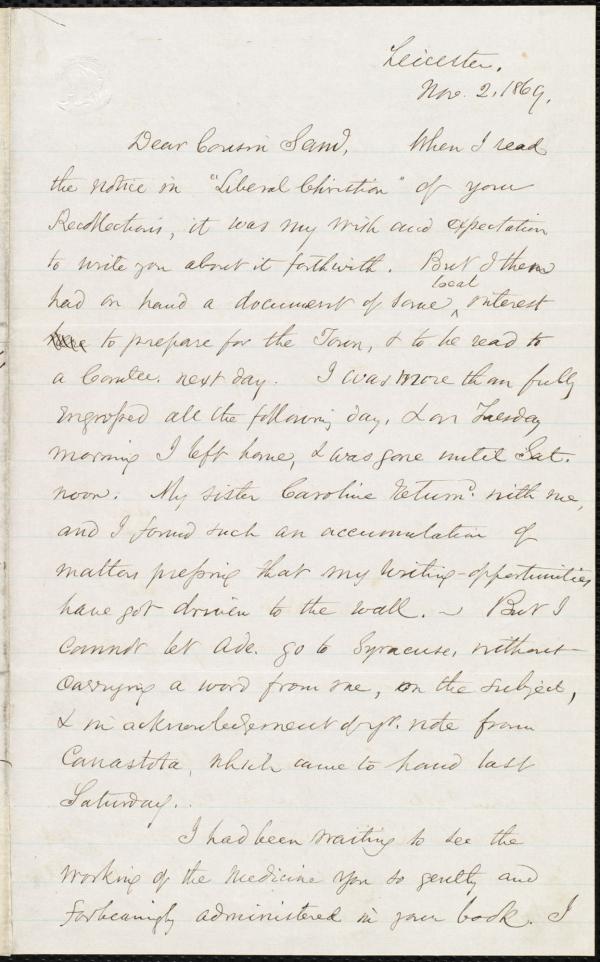 Leicester,
Nov. 2, 1869.
Dear Cousin Saml, When I read
the notice in "Liberal Christian" of your
Recollections, it was my wish and expectation
to write you about it forthwith. But I then
had on hand a document of some local interest
to prepare for the Town, & to be read to
a Comtee. next day. I was more than fully
engrossed all the following day, & on Tuesday
morning I left home, & was gone until Sat.
noon. My sister Caroline returnd. with me,
and I found such an accumulation of
matters pressing that my writing-opportunities
have got driven to the wall. – But I
cannot let Ade. go to Syracuse, without
carrying a word from me, on the subject,
& in acknowledgement of yr. note from
Canastota, which came to hand last
Saturday.
I had been waiting to see the
working of the medicine you so gently and
forbearingly administered in your book. I